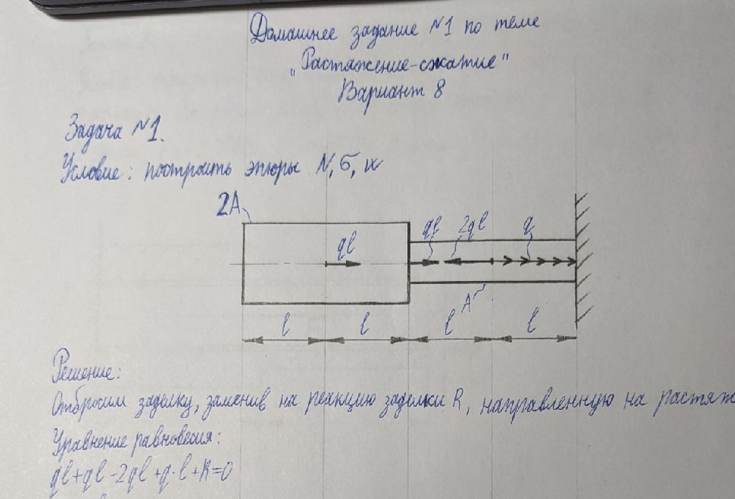 Домашнее задание №1 по теме
"Растяжение-сжатие"
Вариант 8
Задача №1.
Условие: построить эпюры N, σ, u
2A
ql
ql
2ql
q
A
l
l
l
l
Решение:
Отбросим заделку, заменив на реакцию заделки R, направленную на растяж
Уравнение равновесия:
ql+ql-2ql+q·l+R=0